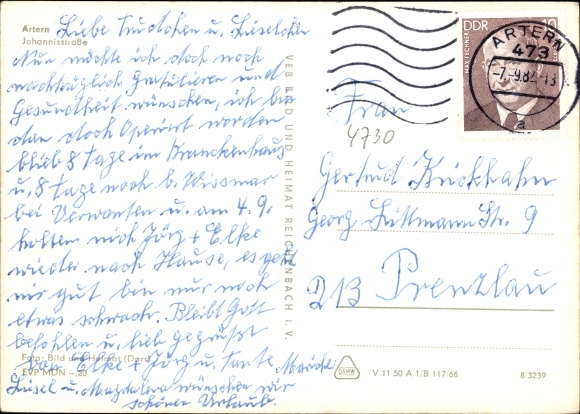 Artern
Johannisstraße
Liebe Trudchen u. Lieselchen
Nun möchte ich doch noch
nachträglich Gratulieren und
Gesundheit wünschen, ich bin
dan doch Operiert worden
blieb 8 tage im Kranckenhaus
u. 8 tage noch b. Wismar
bei Verwanten u. am 4.9.
holten mich Jörg + Elke
wieder nach Hause, es geht
mir gut bin nur noch
etwas schwach. Bleibt Gott
befohlen u. lieb gegrüßt
von Elke + Jörg u. tante Mariechen
Liesel u. Magdalena wünschen wir
schönen Urlaub.
Foto: Bild und Heimat (Dörr)
EVP MDN -,20
VEB BILD UND HEIMAT REICHENBACH I. V.
DDR 10
MAX FECHNER
ARTERN
473
-7.-9.82-13
a
Frau
4730
Gertrud
Georg Str. 9
213 Prenzlau
V 11 50 A 1/B 117/66
8/3239